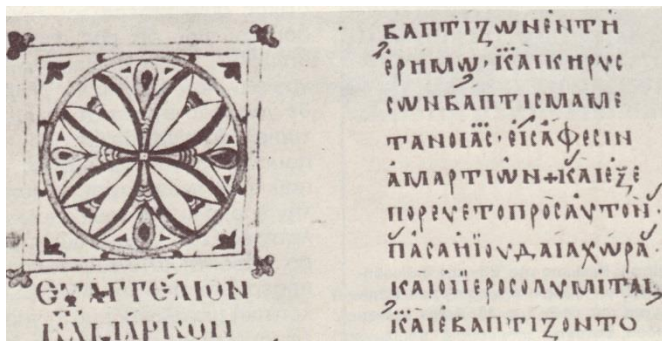 ΕΥΑΓΓΕΛΙΟΝ
ΚΑΤΑ ΜΑΡΚΟΝ
ΒΑΠΤΙΖΩΝΕΝΤΗ
ἐΡΗΜΩ·ΚΑΙΚΗΡΥΣ
ΣΩΝΒΑΠΤΙΣΜΑΜΕ
ΤΑΝΟΙΑΣ·ΕΙΣΑΦΕΣΙΝ
ΑΜΑΡΤΙΩΝ+ΚΑΙΕΞΕ
ΠΟΡΕΥΕΤΟΠΡΟΣΑΥΤΟΝ·
ΠΑΣΑΗΪΟΥΔΑΙΑΧΩΡΑ·
ΚΑΙΟΙΪΕΡΟΣΟΛΥΜΙΤΑΙ
ΚΑΙΕΒΑΠΤΙΖΟΝΤΟ